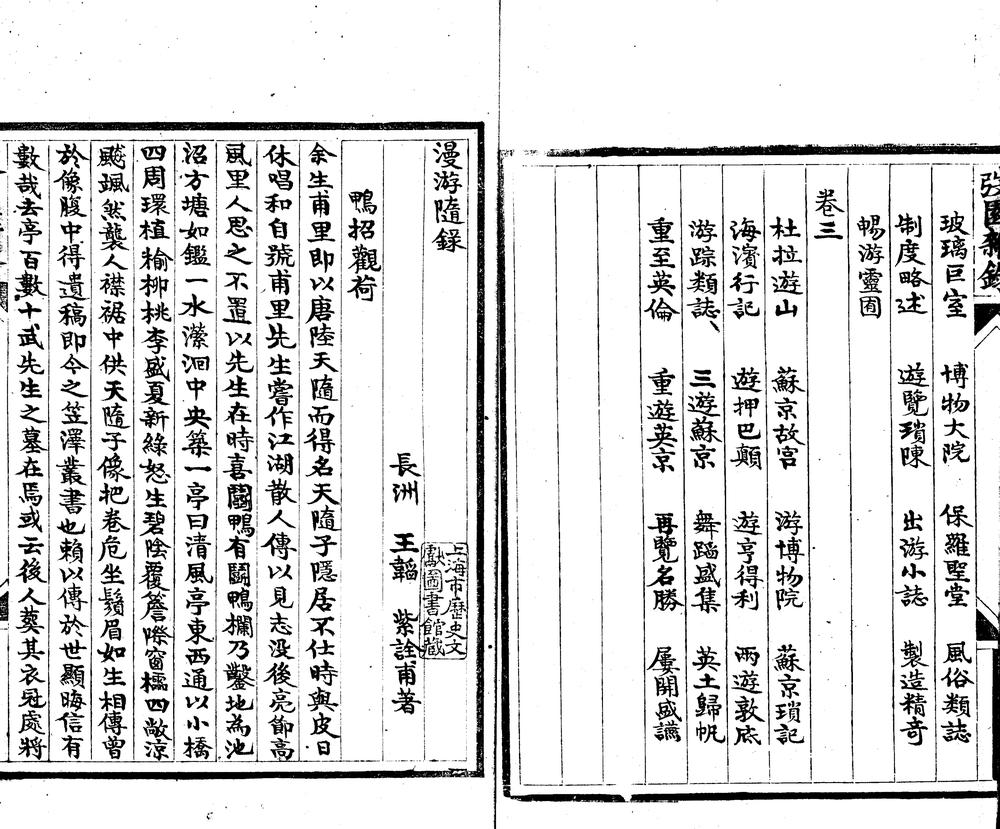 玻璃巨室　博物大院　保羅聖堂　風俗類誌
制度略述　遊覽瑣陳　出游小誌　製造精奇
暢游靈囿
卷三
杜拉遊山　蘇京故宮　游博物院　蘇京瑣記
海濱行記　遊押巴顛　遊亨得利　兩遊敦底
游踪類誌、　三遊蘇京　舞蹈盛集　英土歸帆
重至英倫　重遊英京　再覽名勝　屢開盛讌
漫游隨錄
長洲　王韜　紫詮甫著
上海市歷史文獻圖書館藏
鴨招觀荷
余生甫里即以唐陸天隨而得名天隨子隱居不仕時與皮日
休唱和自號甫里先生嘗作江湖散人傳以見志没後亮節高
風里人思之不置以先生在時喜鬬鴨有鬬鴨欄乃鑿地為池
沼方塘如鑑一水瀠洄中央築一亭曰清風亭東西通以小橋
四周環植榆柳桃李盛夏新綠怒生碧陰覆簷際窗櫺四敞涼
颸颯然襲人襟裾中供天隨子像把卷危坐鬚眉如生相傳曾
於像腹中得遺稿即今之笠澤叢書也賴以傳於世顯晦信有
數哉去亭百數十武先生之墓在焉或云後人葬其衣冠處將